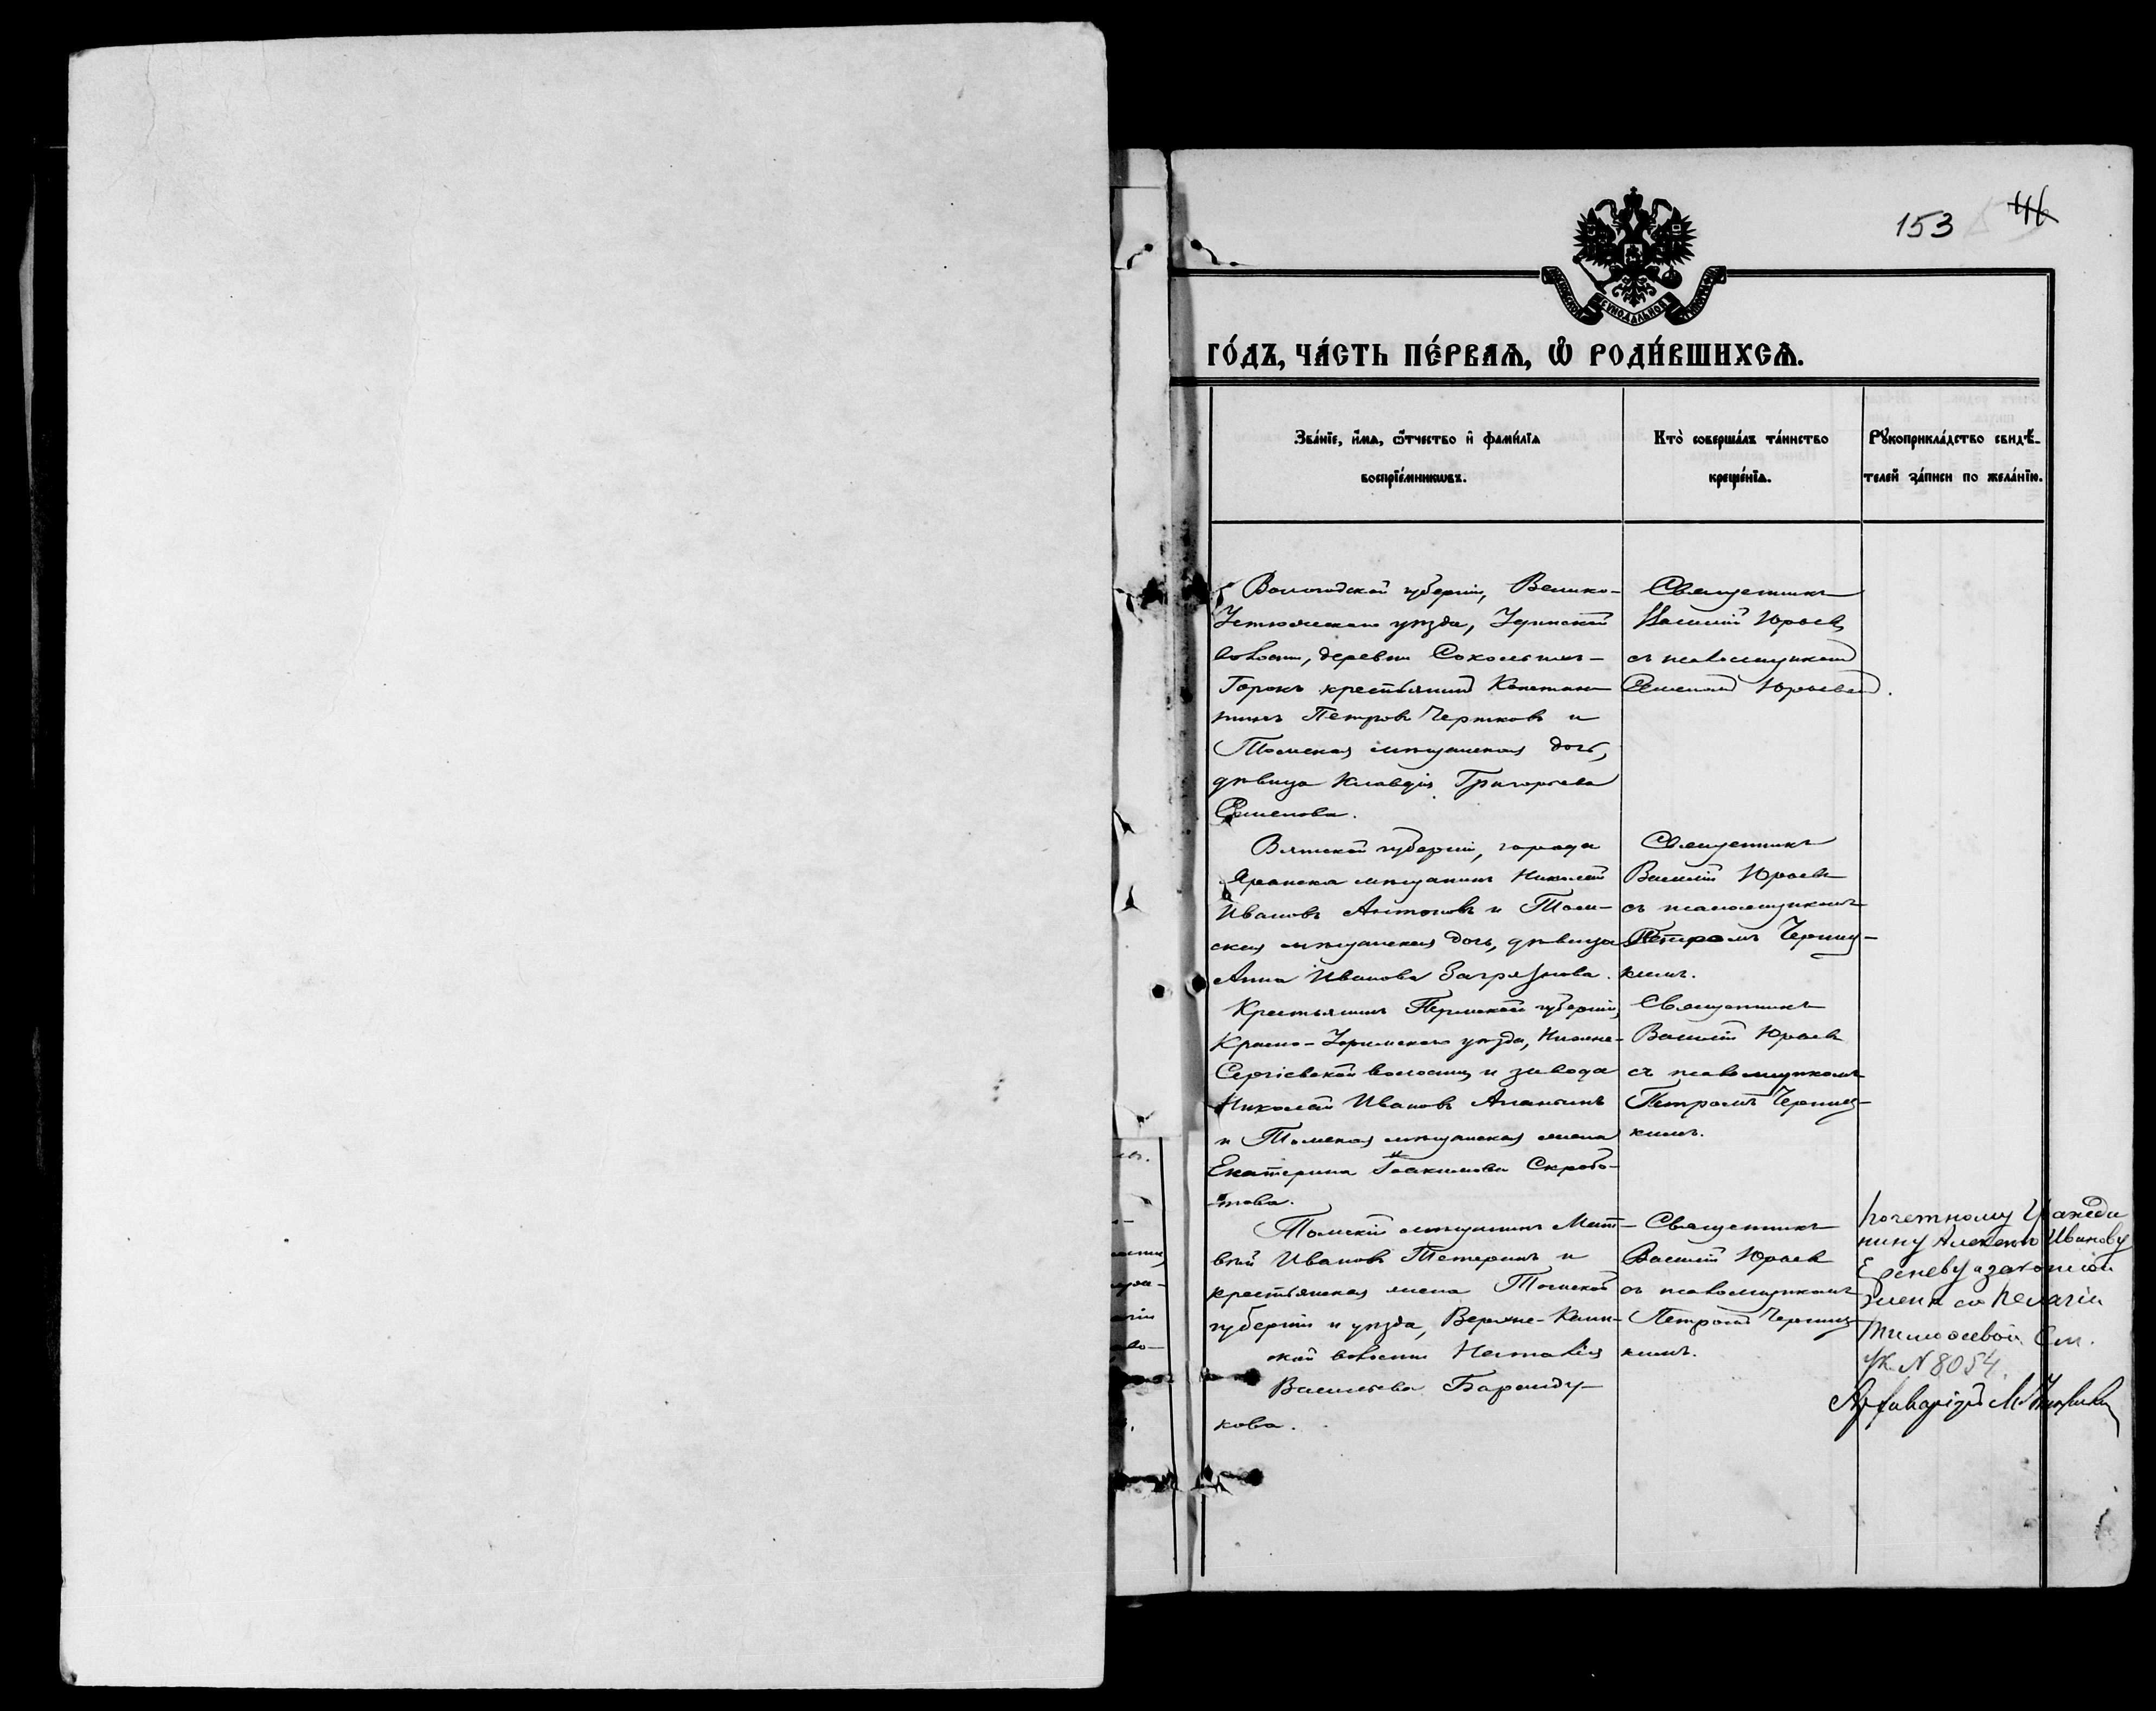 153 46
СѴНОДАЛЬНОЙ
ГО́ДЪ, ЧА́СТЬ ПЕ́РВАѦ, Ѽ РОДИ́ВШИХСѦ.
Зва́нїе, и҆́мѧ, ѻ҆́тчество и҆ фами́лїѧ
воспрїе́мникѡвъ.
Кто̀ соверша́лъ та́инство
креще́нїѧ.
Рꙋкоприкла́дство свидѣ́-
телей за́писи по жела́нїю.
Вологодской губерніи, Велико-
Устюжскаго уѣзда,
волости, деревни Соколыихъ-
Горокъ крестьянинъ Констан-
тинъ Петровъ Чертковъ и
Томская мѣщанская дочь,
дѣвица Клавдія Григорьева
Семенова.
Священникъ
Василій Юрьевъ
съ псаломщикомъ
Юрьевымъ.
Вятской губерніи, города
Яранска мѣщанинъ Николай
Ивановъ Антоновъ и Том-
ская мѣщанская дочь, дѣвица
Анна Иванова Загрязнова.
Священникъ
Василій Юрьевъ
съ псаломщикомъ
Петромъ Черниц-
кимъ.
Крестьянинъ Пермской губерніи,
Красно-Уфимскаго уѣзда, Нижне-
Сергіевской волости и завода
Николай Ивановъ Ананьинъ
и Томская мѣщанская жена
Екатерина Іоакимова Скробо-
това.
Священникъ
Василій Юрьевъ
съ псаломщикомъ
Петромъ Черниц-
кимъ.
Томскій мѣщанинъ Мат-
вѣй Ивановъ Тетеринъ и
крестьянская жена Томской
губерніи и уѣзда, Верхне-
волости Наталія
Васильева Баранду-
кова.
Священникъ
Василій Юрьевъ
съ псаломщикомъ
Петромъ Черниц-
кимъ.
Почетному Гражда
нину Алексѣю Иванову
Ереневу и законной
женѣ его Пелагіи
Тимоѳевой
№ 8054.
Архиваріусъ